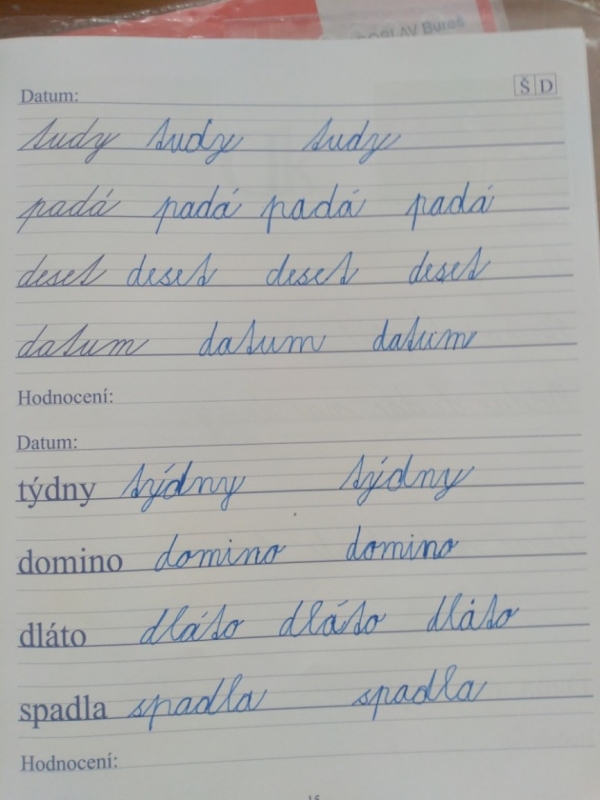 OSLAV Bureš
Datum: Š D
tudy tudy tudy
padá padá padá padá
deset deset deset deset
datum datum datum
Hodnocení:
Datum:
týdny týdny týdny
domino domino domino
dláto dláto dláto dláto
spadla spadla spadla
Hodnocení:
15